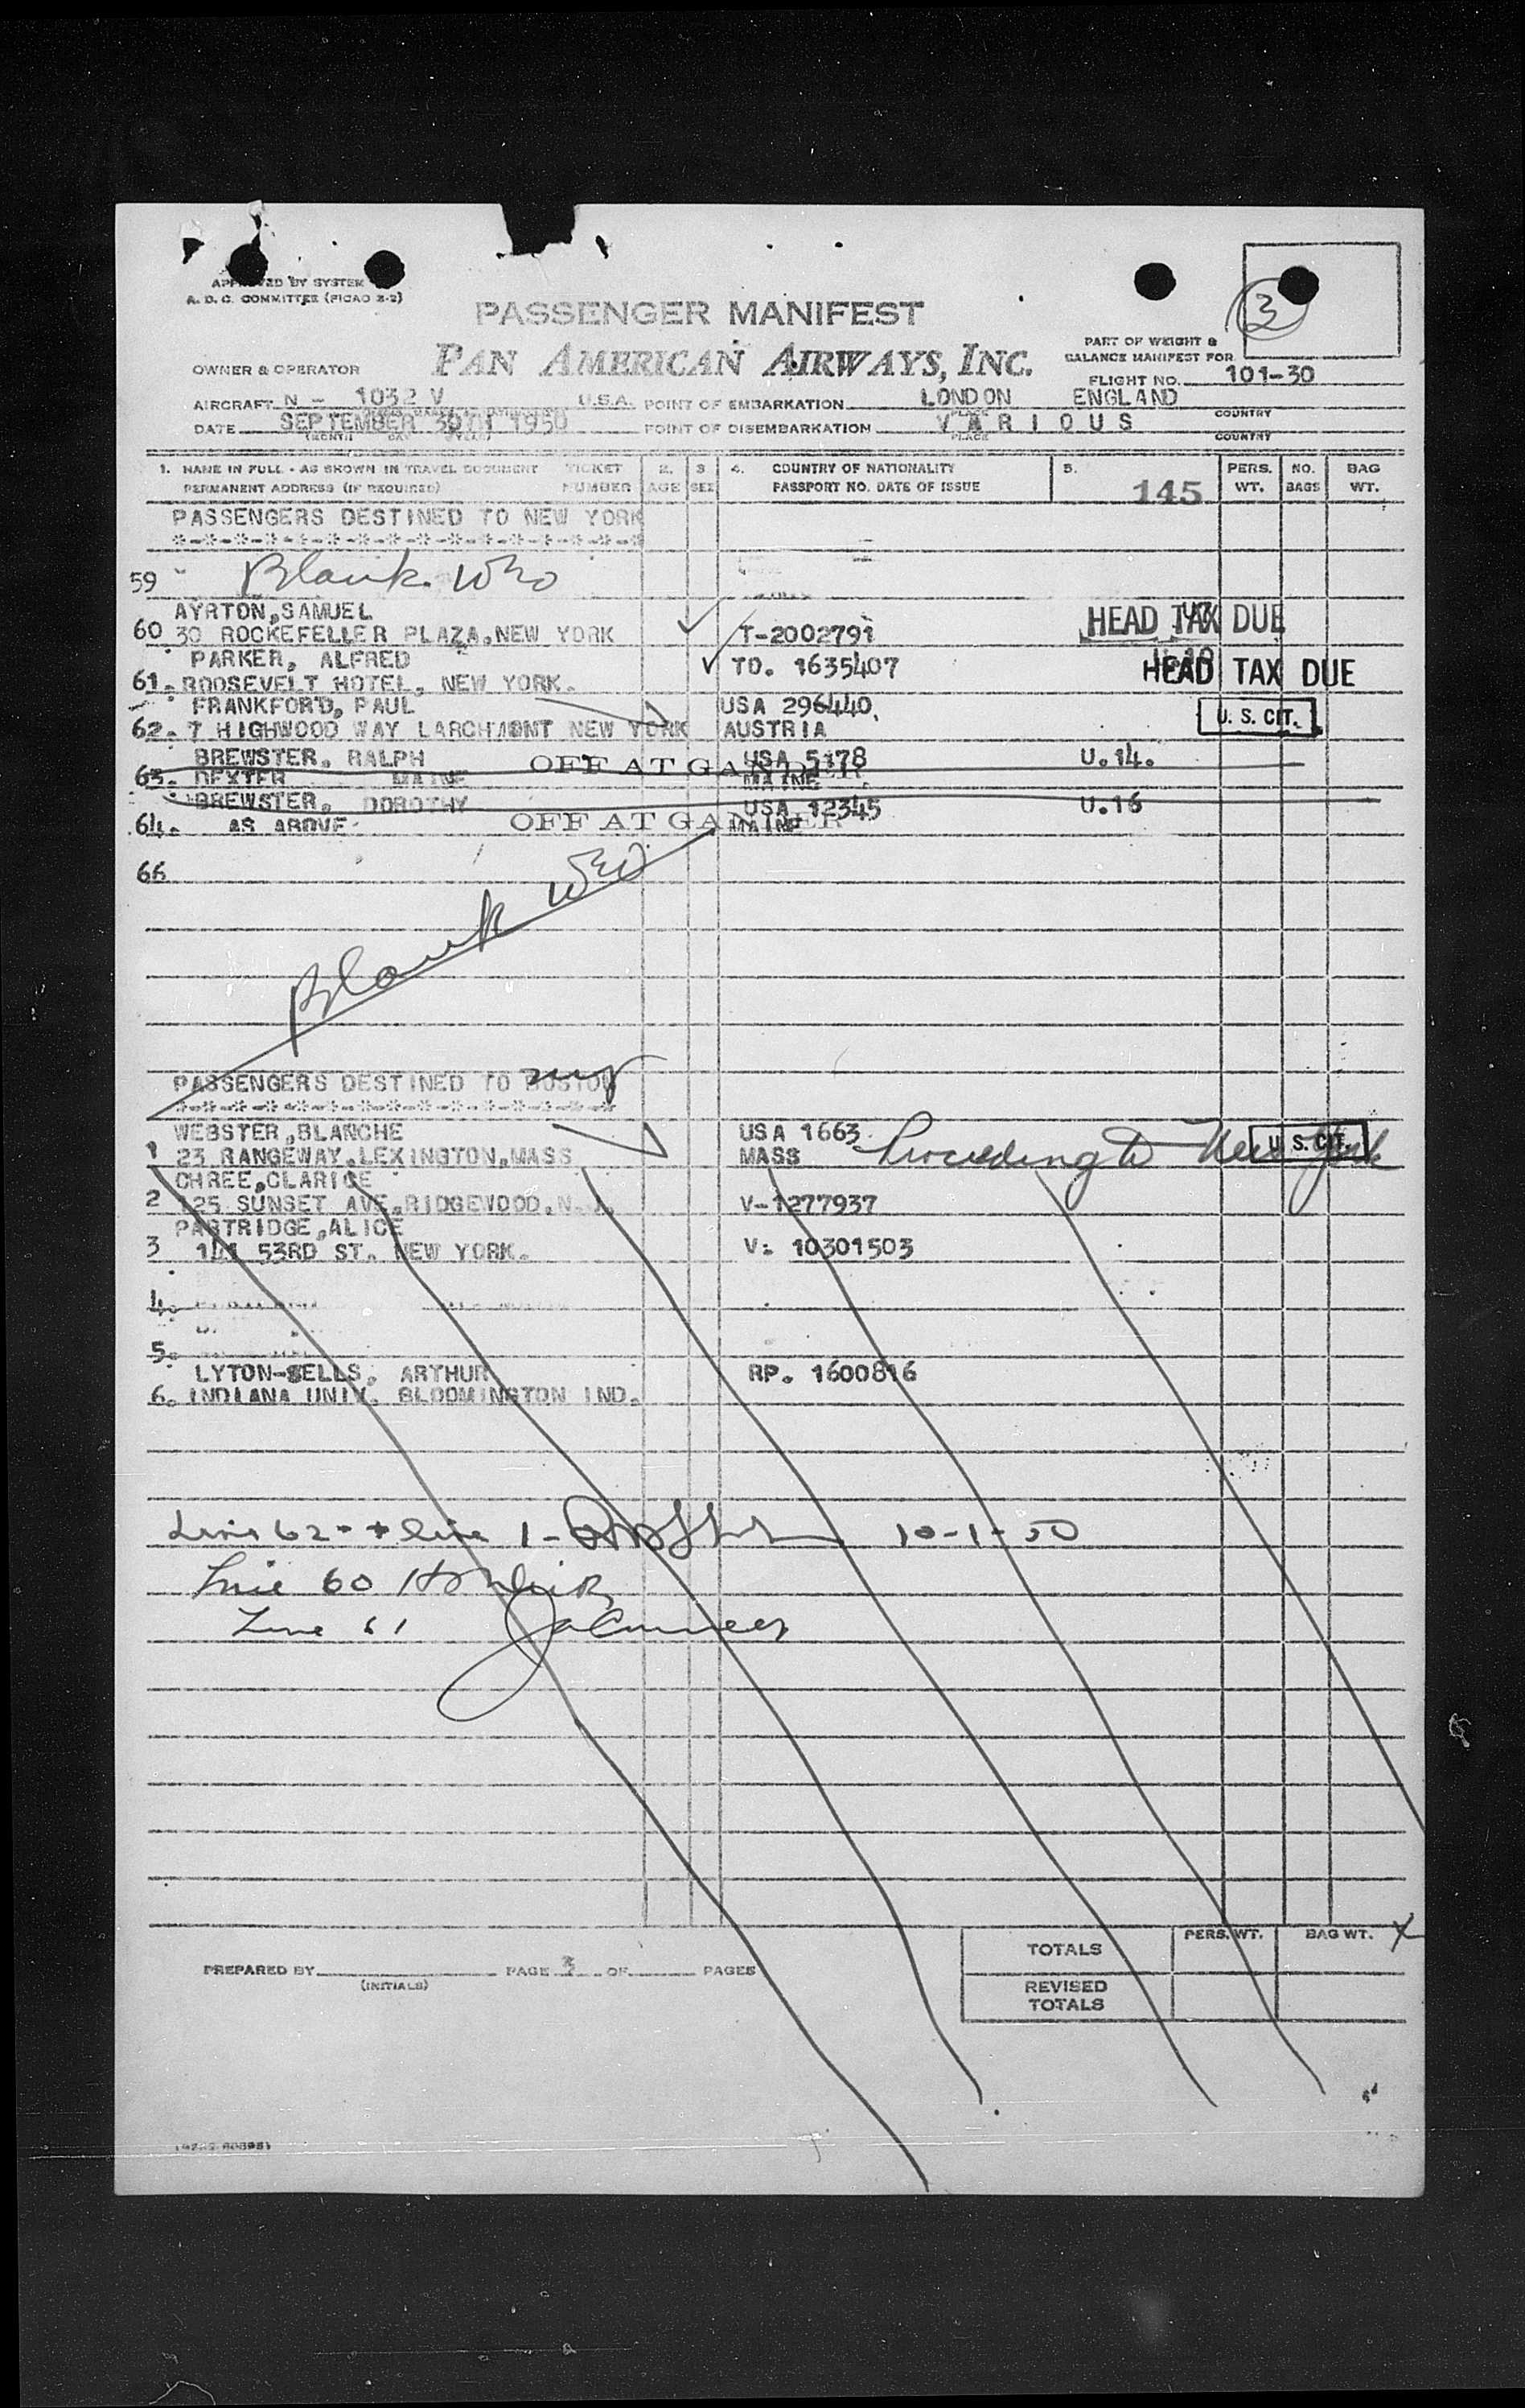 APPROVED BY SYSTEM
A. D. C. COMMITTEE (PICAO 2-2)
PASSENGER MANIFEST
3
PART OF WEIGHT &
BALANCE MANIFEST FOR
OWNER & OPERATOR PAN AMERICAN AIRWAYS, INC.
FLIGHT NO. 101-30
AIRCRAFT N - 1032 V U.S.A. POINT OF EMBARKATION LONDON ENGLAND
PLACE COUNTRY
DATE SEPTEMBER 30TH 1950 POINT OF DISEMBARKATION V A R I O U S
(MONTH DAY YEAR) PLACE COUNTRY
1. NAME IN FULL - AS SHOWN IN TRAVEL DOCUMENT TICKET 2. 3 4. COUNTRY OF NATIONALITY 5. PERS. NO. BAG
PERMANENT ADDRESS (IF REQUIRED) NUMBER AGE SEX PASSPORT NO. DATE OF ISSUE 145 WT. BAGS WT.
PASSENGERS DESTINED TO NEW YORK
*-*-*-*-*-*-*-*-*-*-*-*-*-*-*-*
59 Blank
AYRTON,SAMUEL HEAD TAX DUE
60 30 ROCKEFELLER PLAZA,NEW YORK T-2002791
PARKER, ALFRED TO. 1635407 HEAD TAX DUE
61. ROOSEVELT HOTEL, NEW YORK.
FRANKFORD, PAUL USA 296440, U. S. CIT.
62. 7 HIGHWOOD WAY LARCHMONT NEW YORK AUSTRIA
BREWSTER, RALPH OFF AT GANDER USA 5178 U.14.
63. DEXTER MAINE MAINE
BREWSTER, DOROTHY USA 12345 U.16
64. AS ABOVE OFF AT GANDER MAINE
66
Blank
PASSENGERS DESTINED TO BOSTON
*-*-*-*-*-*-*-*-*-*-*-*-*-*-*
WEBSTER,BLANCHE USA 1663
1 23 RANGEWAY,LEXINGTON,MASS MASS Proceeding to New York U. S. CIT.
CHREE,CLARICE
2 125 SUNSET AVE,RIDGEWOOD,N.J. V-1277937
PARTRIDGE,ALICE
3 141 53RD ST. NEW YORK. V: 10301503
4.
5.
LYTON-SELLS, ARTHUR RP. 1600816
6. INDIANA UNIV. BLOOMINGTON IND.
Line 62 + line 1 - 10-1-50
Line 60
Line 61
TOTALS PERS. WT. BAG WT. X
PREPARED BY PAGE 3 OF PAGES
(INITIALS)
REVISED
TOTALS